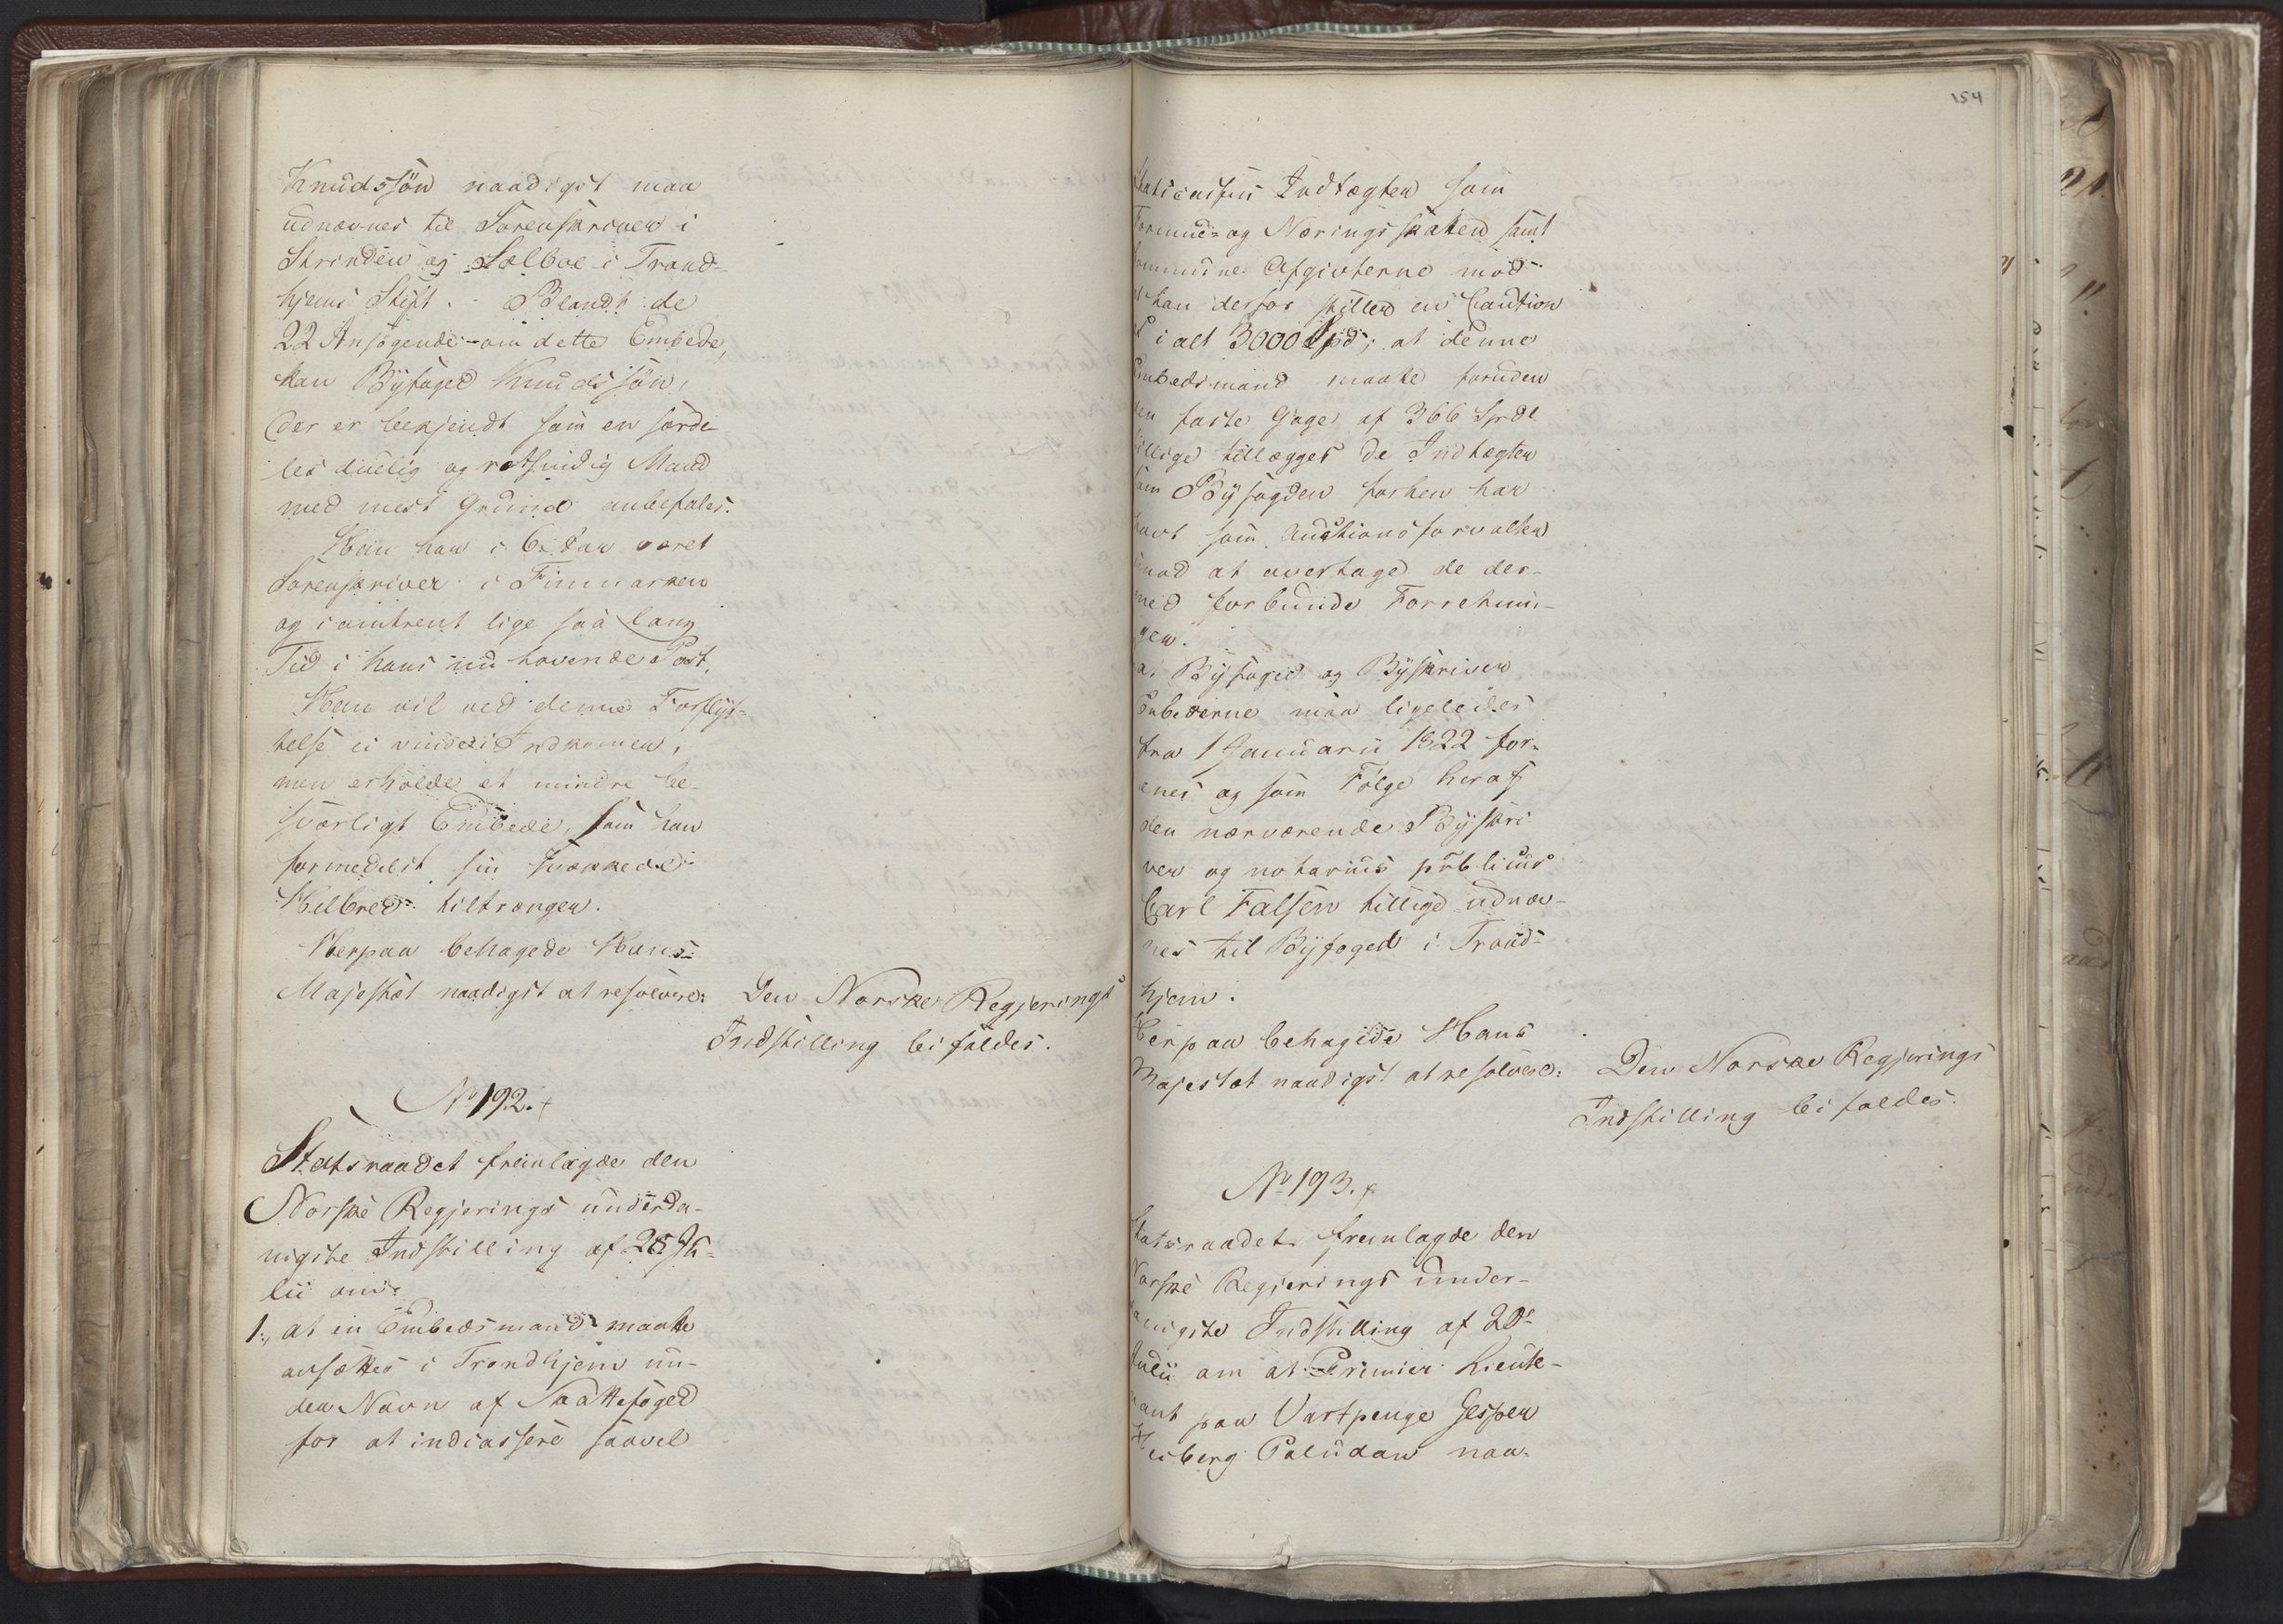 Knudssön naadigst maa
udnævnes til Sorenskriver i
Strinden og Sælboe i Trond-
hjems Stift. - Blandt de
22 Ansögende om dette Embede,
kan Byfoged Knudssön,
der er bekjendt som en særde-
les duelig og retsindig Mand
med mest Grund anbefales.
Han har i 6 Aar været
Sorenskriver i Finmarken
og i omtrent lige saa lang
Tid i hans nu havende Post.
Han vil ved denne Forflyt-
telse ei vinde i Indkomen,
men erholde et mindre be-
sværligt Embede, som han
formedelst sin svækkede
Helbred tiltrænger.
Herpaa behagede Hans
Majestæt naadigst at resolvere:
Den Norske Regjerings
Indstilling bifaldes.
No 192.
Statsraadet fremlagde den
Norske Regjerings underda-
nigste Indstilling af 28 Ju-
lii om:
1., at en Embedsmand maatte
ansættes i Trondhjem un-
der Navn af Skattefoged
for at indcassere saavel
154
Indtægter som
Formue- og Næringsskatten samt
Commune Afgivterne mod
at han derfor stiller en Caution
i alt 3000 Spd; at denne
Embedsmand maatte foruden
den faste Gage af 366 Spdl
tillige tillægges de Indtægter
som Byfogden forhen har
havt som Auctionsforvalter
imod at overtage de der-
med forbundne Forretnin-
ger.
at Byfoged og Byskriver
Embederne maa ligeledes
fra 1 Januarii 1822 for-
enes og som Fölge heraf
den nærværende Byskri-
ver og notarius publicus
Carl Falsen tillige udnæv-
nes til Byfoged i Trond-
hjem.
Herpaa behagede Hans
Majestæt naadigst at resolvere:
Den Norske Regjerings
Indstilling bifaldes.
No 193.
Statsraadet fremlagde den
Norske Regjerings under-
danigste Indstilling af 20de
Julii om at Premier Lieute-
nant paa Vartpenge Jesper
Paludan naa-